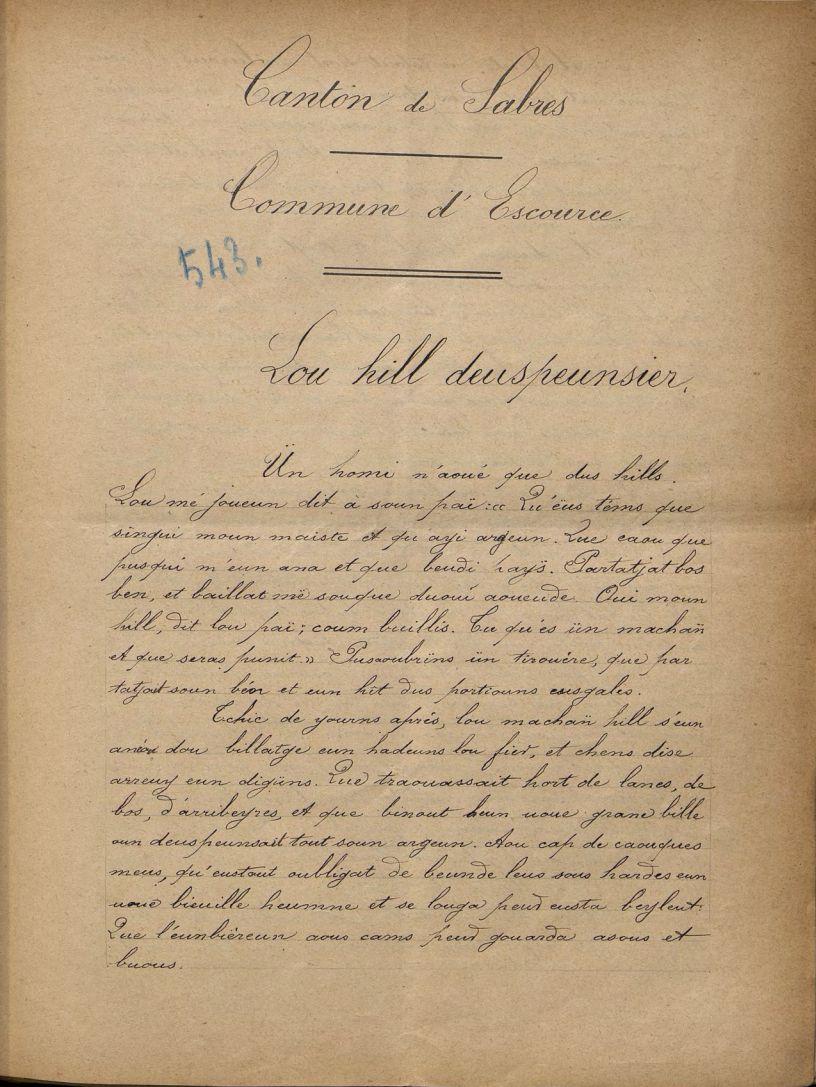 Canton de Sabres
Commune d'Escource.
543.
Lou hill deuspeunsier.
Ün homi n'aoué que dus hills.
Lou mé joueun dit à soun païː « Qu'ëus tëms que
singui moun maiste et qu'ayi argeun. Que caou que
pusqui m'eun ana et que beudi païs. Partatjat bos
ben, et baillat më so que duouï aoueude. Oui moun
hill, dit lou païː; coum buillis. Tu qu'es ün machaň
et que seras punit. » Pus oubrins ün tirouére, que par
tatjait soun béń et eun hit dus portiouns eusgalis.
Tchic de yourns aprés, lou machaň hill s'eun
anéou dou billatge eun hadeuns lou fier, et chens dise
arreuy eun digüns. Que traouassait hort de lanes, de
bos, d'arribeyres, et que binout heun uoue grane bille
oun deuspeunsait tout soun argeun. Aou cap de caouques
meus, qu'eustout oubligat de beunde leus sous hardes eun
uoue bieuille heumne et se louga peur eusta beyleut.
Que l'eunbièreun aous cams peur gouarda asous et
buous.